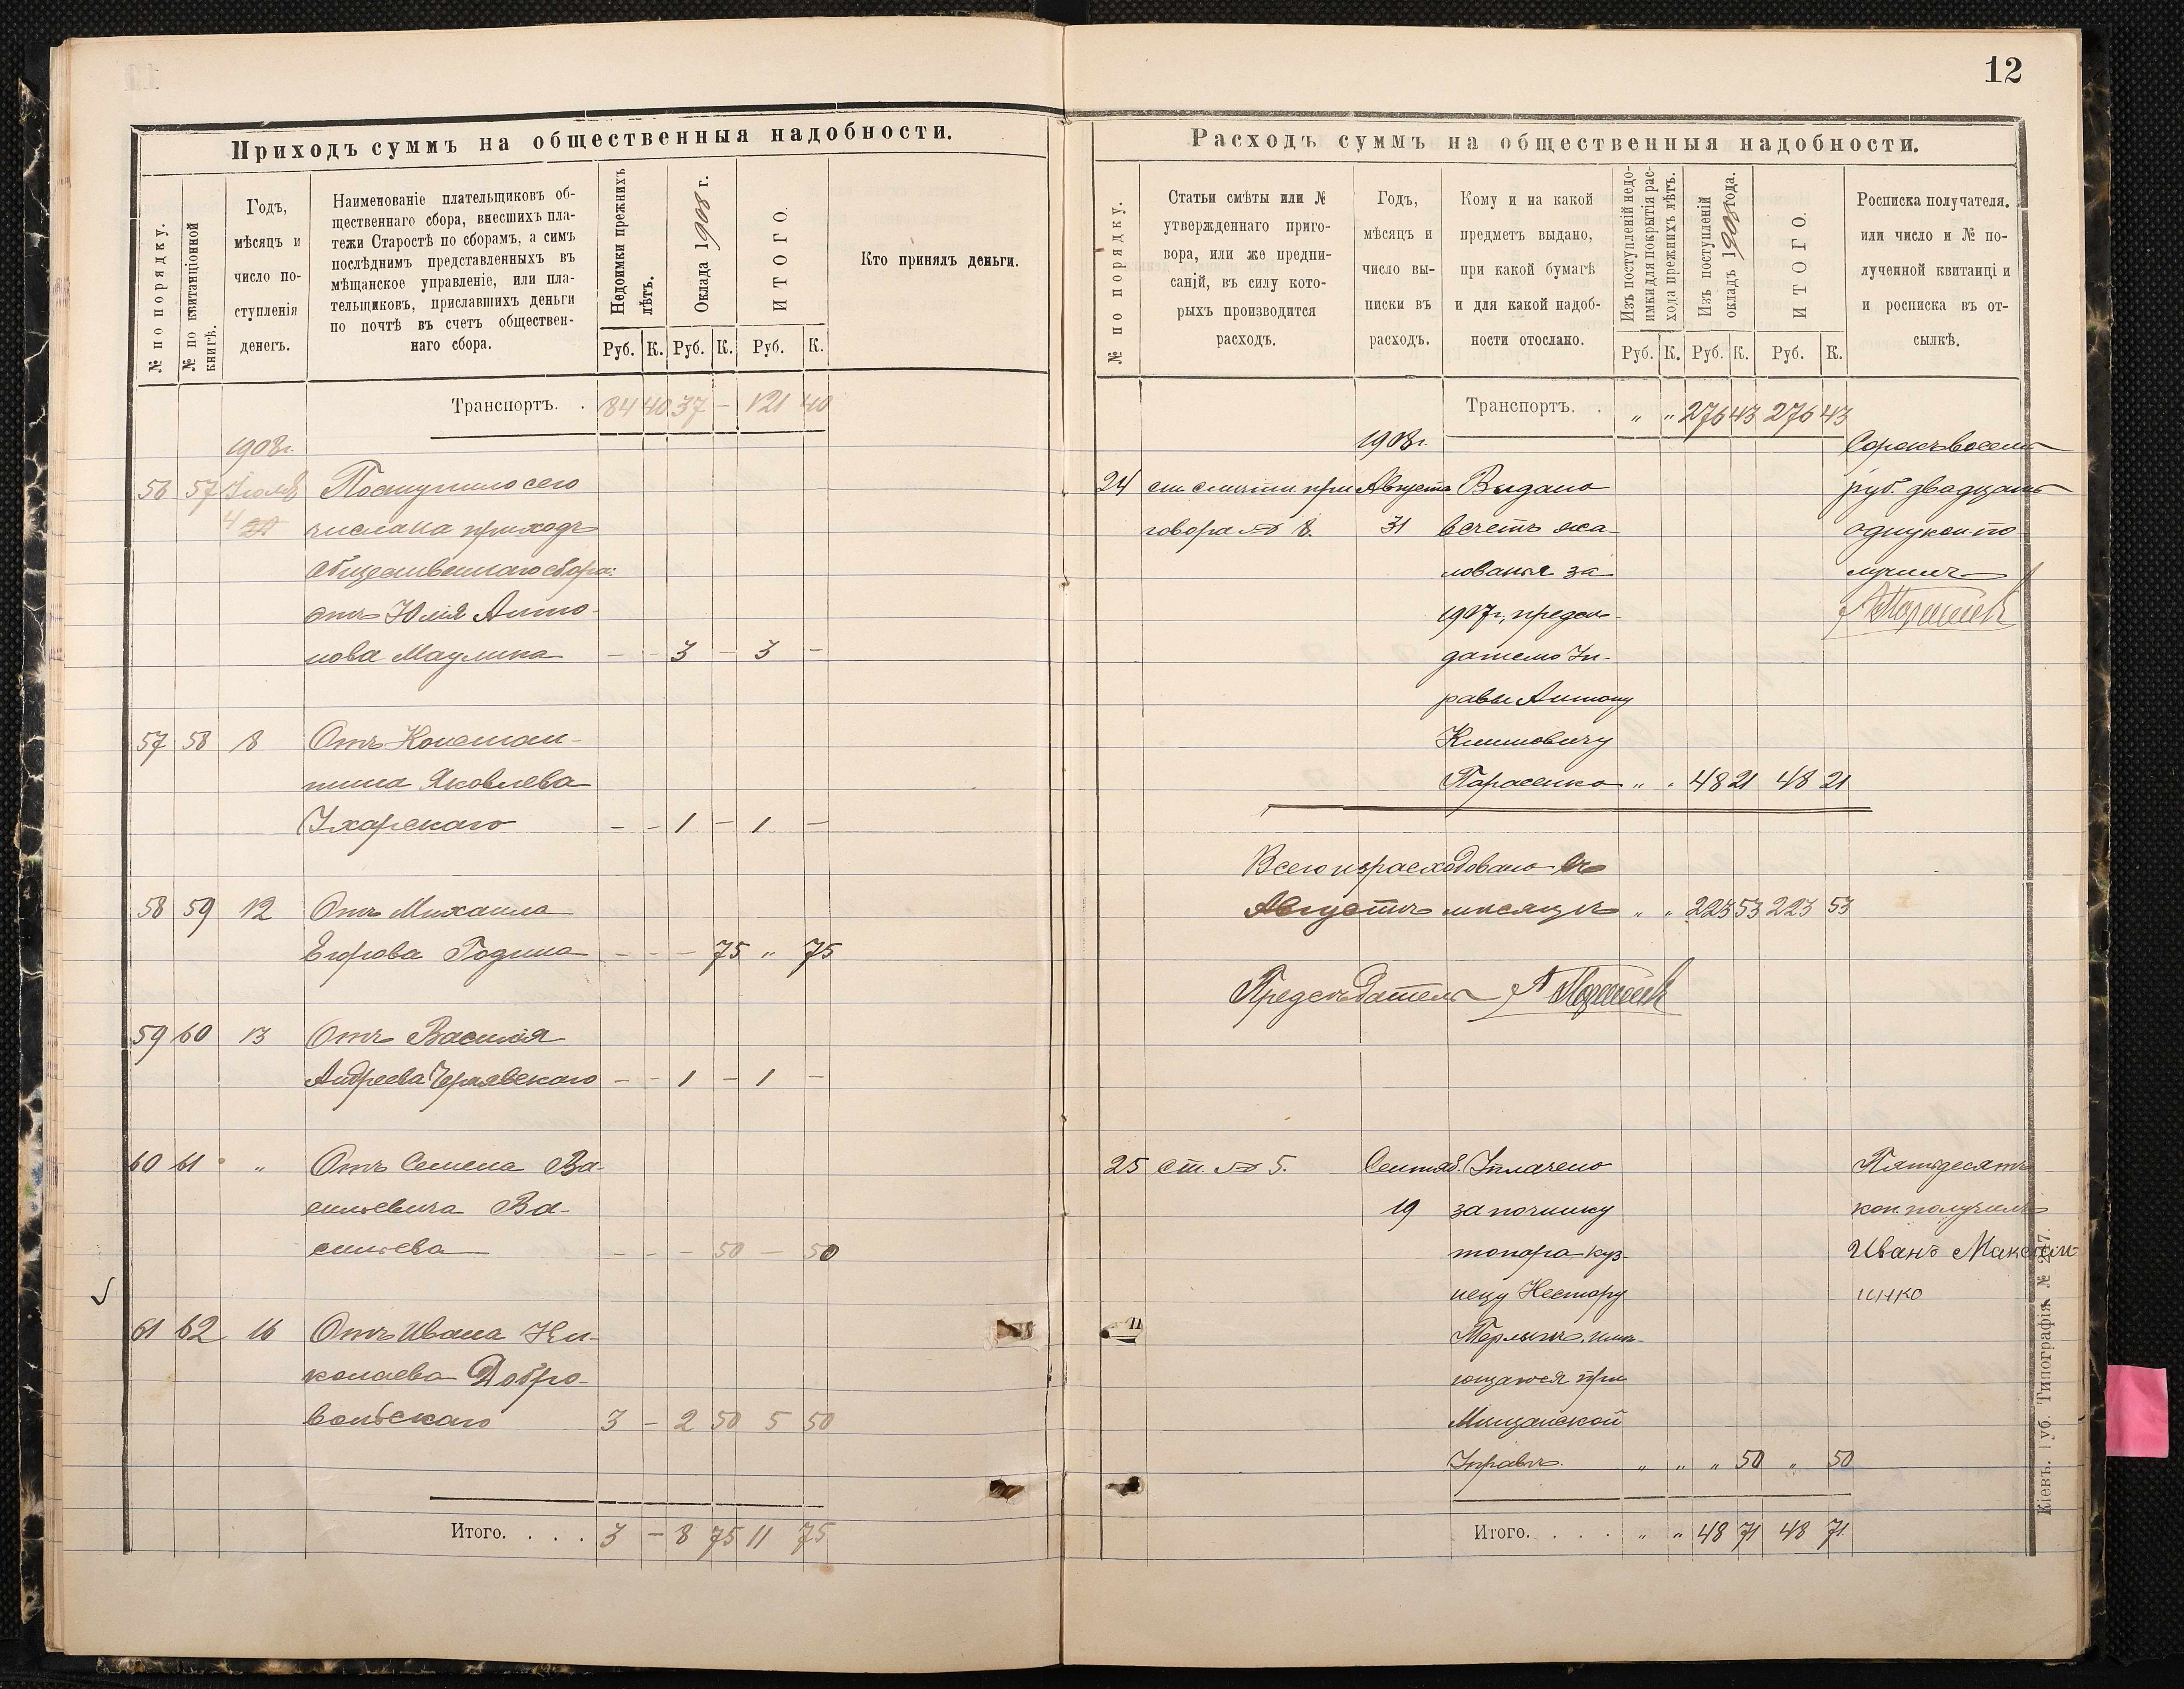 Приходъ суммъ на общественныя надобности.
№ по порядку.
№ по квитанціонной книгѣ.
Годъ,
мѣсяцъ и
число по-
ступленія
денегъ.
Наименованіе плательщиковъ об-
щественнаго сбора, внесшихъ пла-
тежи Старостѣ по сборамъ, а симъ
послѣднимъ представленныхъ въ
мѣщанское управленіе, или пла-
тельщиковъ, приславшихъ деньги
по почтѣ въ счетъ обществен-
наго сбора.
Недоимки прежнихъ лѣтъ.
Оклада 1908 г.
ИТОГО.
Кто принялъ деньги.
Руб. К. Руб. К. Руб. К.
Транспортъ. . 84 40 37 — 121 40
1908 г.
56 57 Іюля Поступило сего
4 числа на приходъ
общественнаго сбора:
отъ Юлія Анто-
нова Маулина — — 3 — 3 —
57 58 8 Отъ Констан-
тина Яковлева
— — 1 — 1 —
58 59 12 Отъ Михаила
Егорова Година — — — 75 „ 75
59 60 13 Отъ Василія
Андреева Чернявскаго — — 1 — 1 —
60 61 „ Отъ Семена Ва-
сильевича Ва-
сильева — — — 50 — 50
61 62 16 Отъ Ивана Ни-
колаева Добро-
вольскаго 3 — 2 50 5 50
Итого. . . . 3 — 8 75 11 75
12
Расходъ суммъ на общественныя надобности.
№ по порядку.
Статьи смѣты или №
утвержденнаго приго-
вора, или же предпи-
саній, въ силу кото-
рыхъ производится
расходъ.
Годъ,
мѣсяцъ и
число вы-
писки въ
расходъ.
Кому и на какой
предметъ выдано,
при какой бумагѣ
и для какой надоб-
ности отослано.
Изъ поступленій недо-
имки для покрытія рас-
хода прежнихъ лѣтъ.
Изъ поступленій
окладъ 1908 года.
ИТОГО.
Росписка получателя.
или число и № по-
лученной квитанці и
и росписка въ от-
сылкѣ.
Руб. К. Руб. К. Руб. К.
Транспортъ. . „ „ 276 43 276 43
1908 г. Сорокъ восемь
24 при Августа Выдано руб. двадцать
говора № 8. 31 всчетъ жа- одну коп по
лованья за лучилъ
1907 г, предсѣ-
дателю Уп-
равы Антону
Климовичу
Парасенко „ „ 48 21 48 21
Всего израсходовано въ
Августѣ мѣсяцѣ „ „ 223 53 223 53
Предсѣдатель
25 ст. № 5. Сентяб. Уплачено Пятьдесятъ
19 за починку коп. получилъ
топора куз- Иванъ Максим-
нецу Нестору енко
имѣ-
ющагося при
Мѣщанской
Управѣ. „ „ „ 50 „ 50
Итого. . . . „ „ 48 71 48 71
Кіевъ. Губ. Типографія № 247.